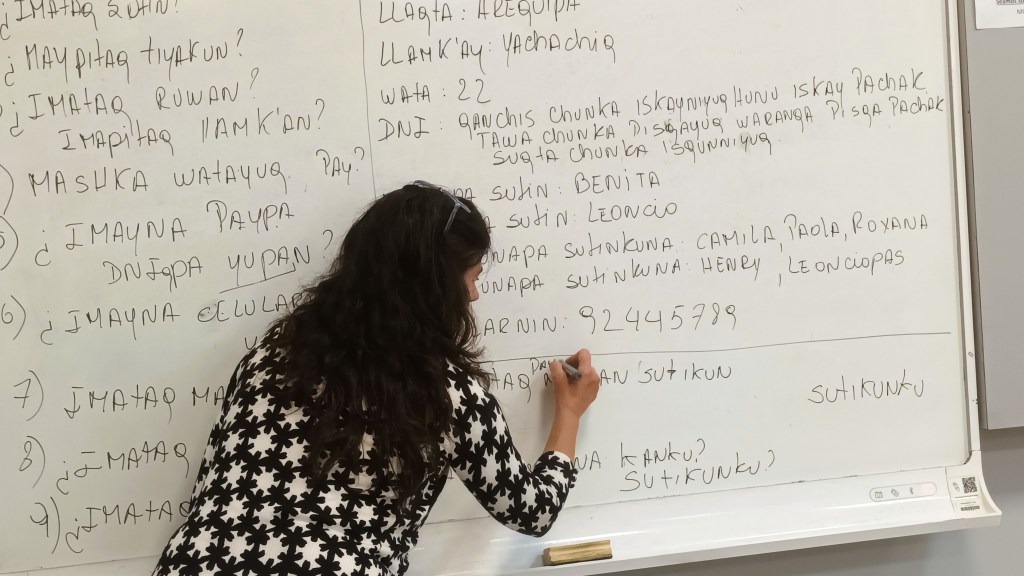 ¿ IMATAQ SUTIN?
¿ MAYPITAQ TIYAKUN?
¿ IMATAQ RUWAN?
IMAPITAQ LLAMK'AN?
MASHKA WATAYUQ PAY?
¿ IMAYNA PAYPA
DNIQPA YUPAN?
6) ¿ IMAYNA CELULAR
7) IMATAQ MA
8) ¿ IMATAQ
9) ¿ IMATAQ
LLAQTA: AREQUIPA
LLAMK'AY: YACHACHIQ
WATA: 22
DNI: QANCHIS CHUNKA ISKAYNIYUQ HUNU ISKAY PACHAK
TAWA CHUNKA PISQAYUQ WARANQA PISQA PACHAK
SUQTA CHUNKA ISQUNNIYUQ
PA SUTIN: BENITA
SUTIN: LEONCIO
NAPA SUTINKUNA: CAMILA, PAOLA, ROXANA
UNAPA SUTINKUNA: HENRY, LEONCIOPAS
LARNIN: 92445789
TAQ PAY AN SUTIKUN
SUTIKUNKU
NA KANKU?
SUTIKUNKU?